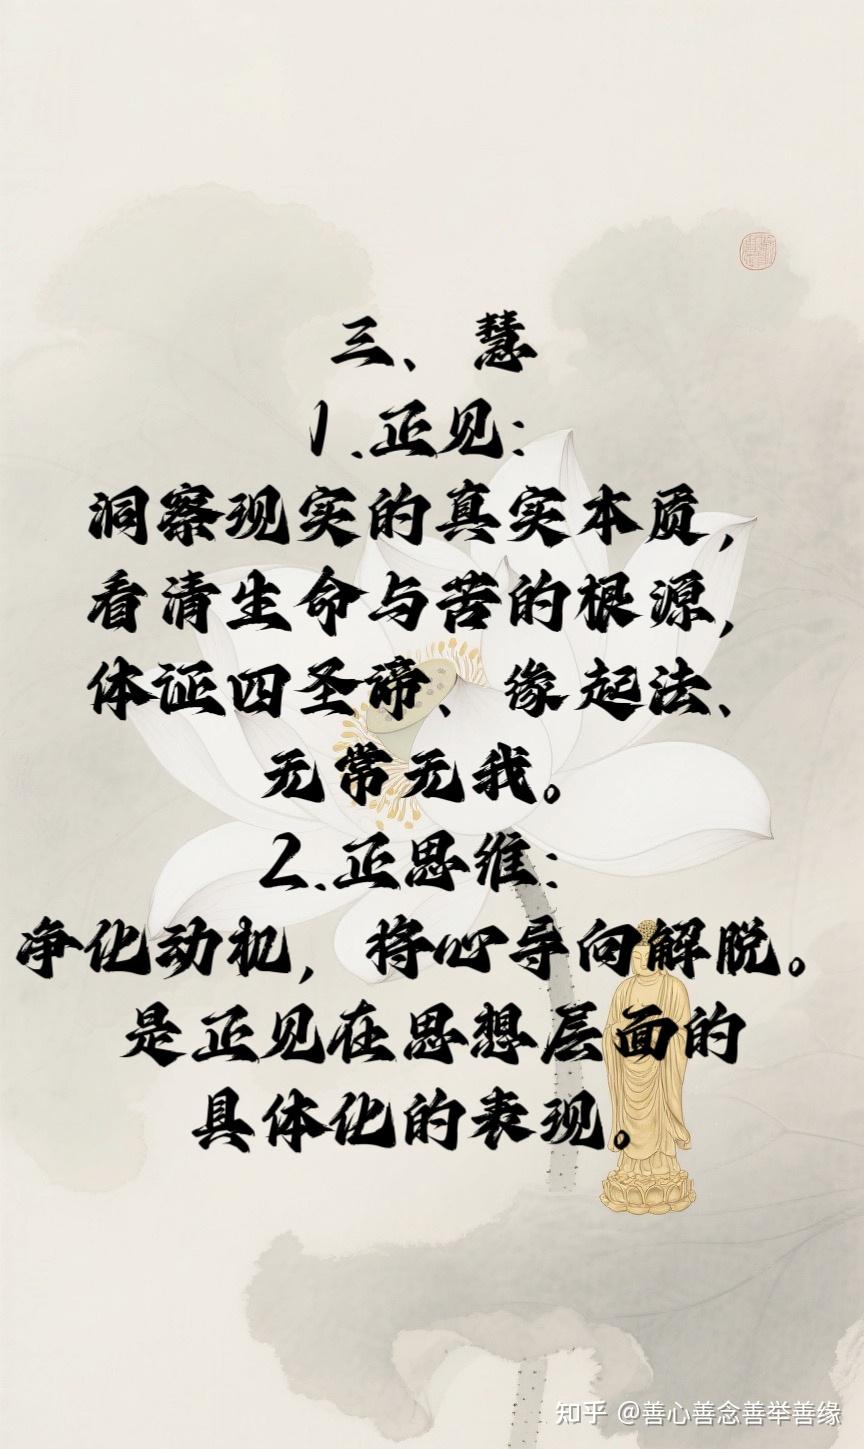 三、慧
1.正见：
洞察现实的真实本质，
看清生命与苦的根源，
体证四圣谛、缘起法、
无常无我。
2.正思维：
净化动机，将心导向解脱。
是正见在思想层面的
具体化的表现。
知乎 @善心善念善举善缘